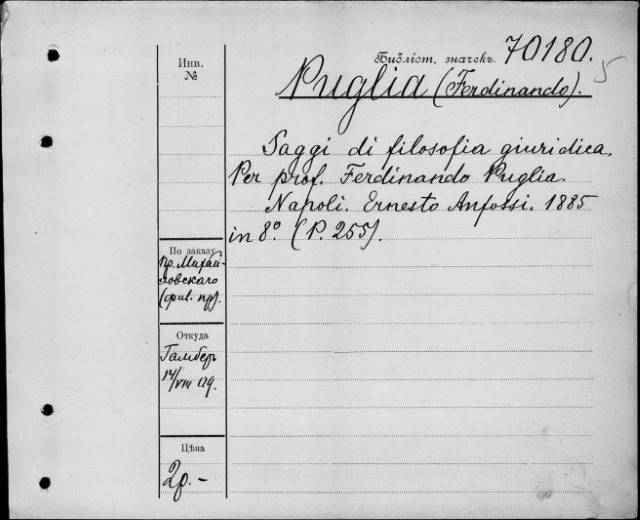 Инв.
№
Библіот. значекъ 70180.
5
Puglia (Ferdinando).
Saggi di filosofia giuridica.
Per prof. Ferdinando Puglia.
Napoli. Ernesto Anfossi. 1885
in 8º. (P. 255).
По заказу
пр. Михай-
ловскаго
Откуда
Гамберъ
Цѣна
2р. -